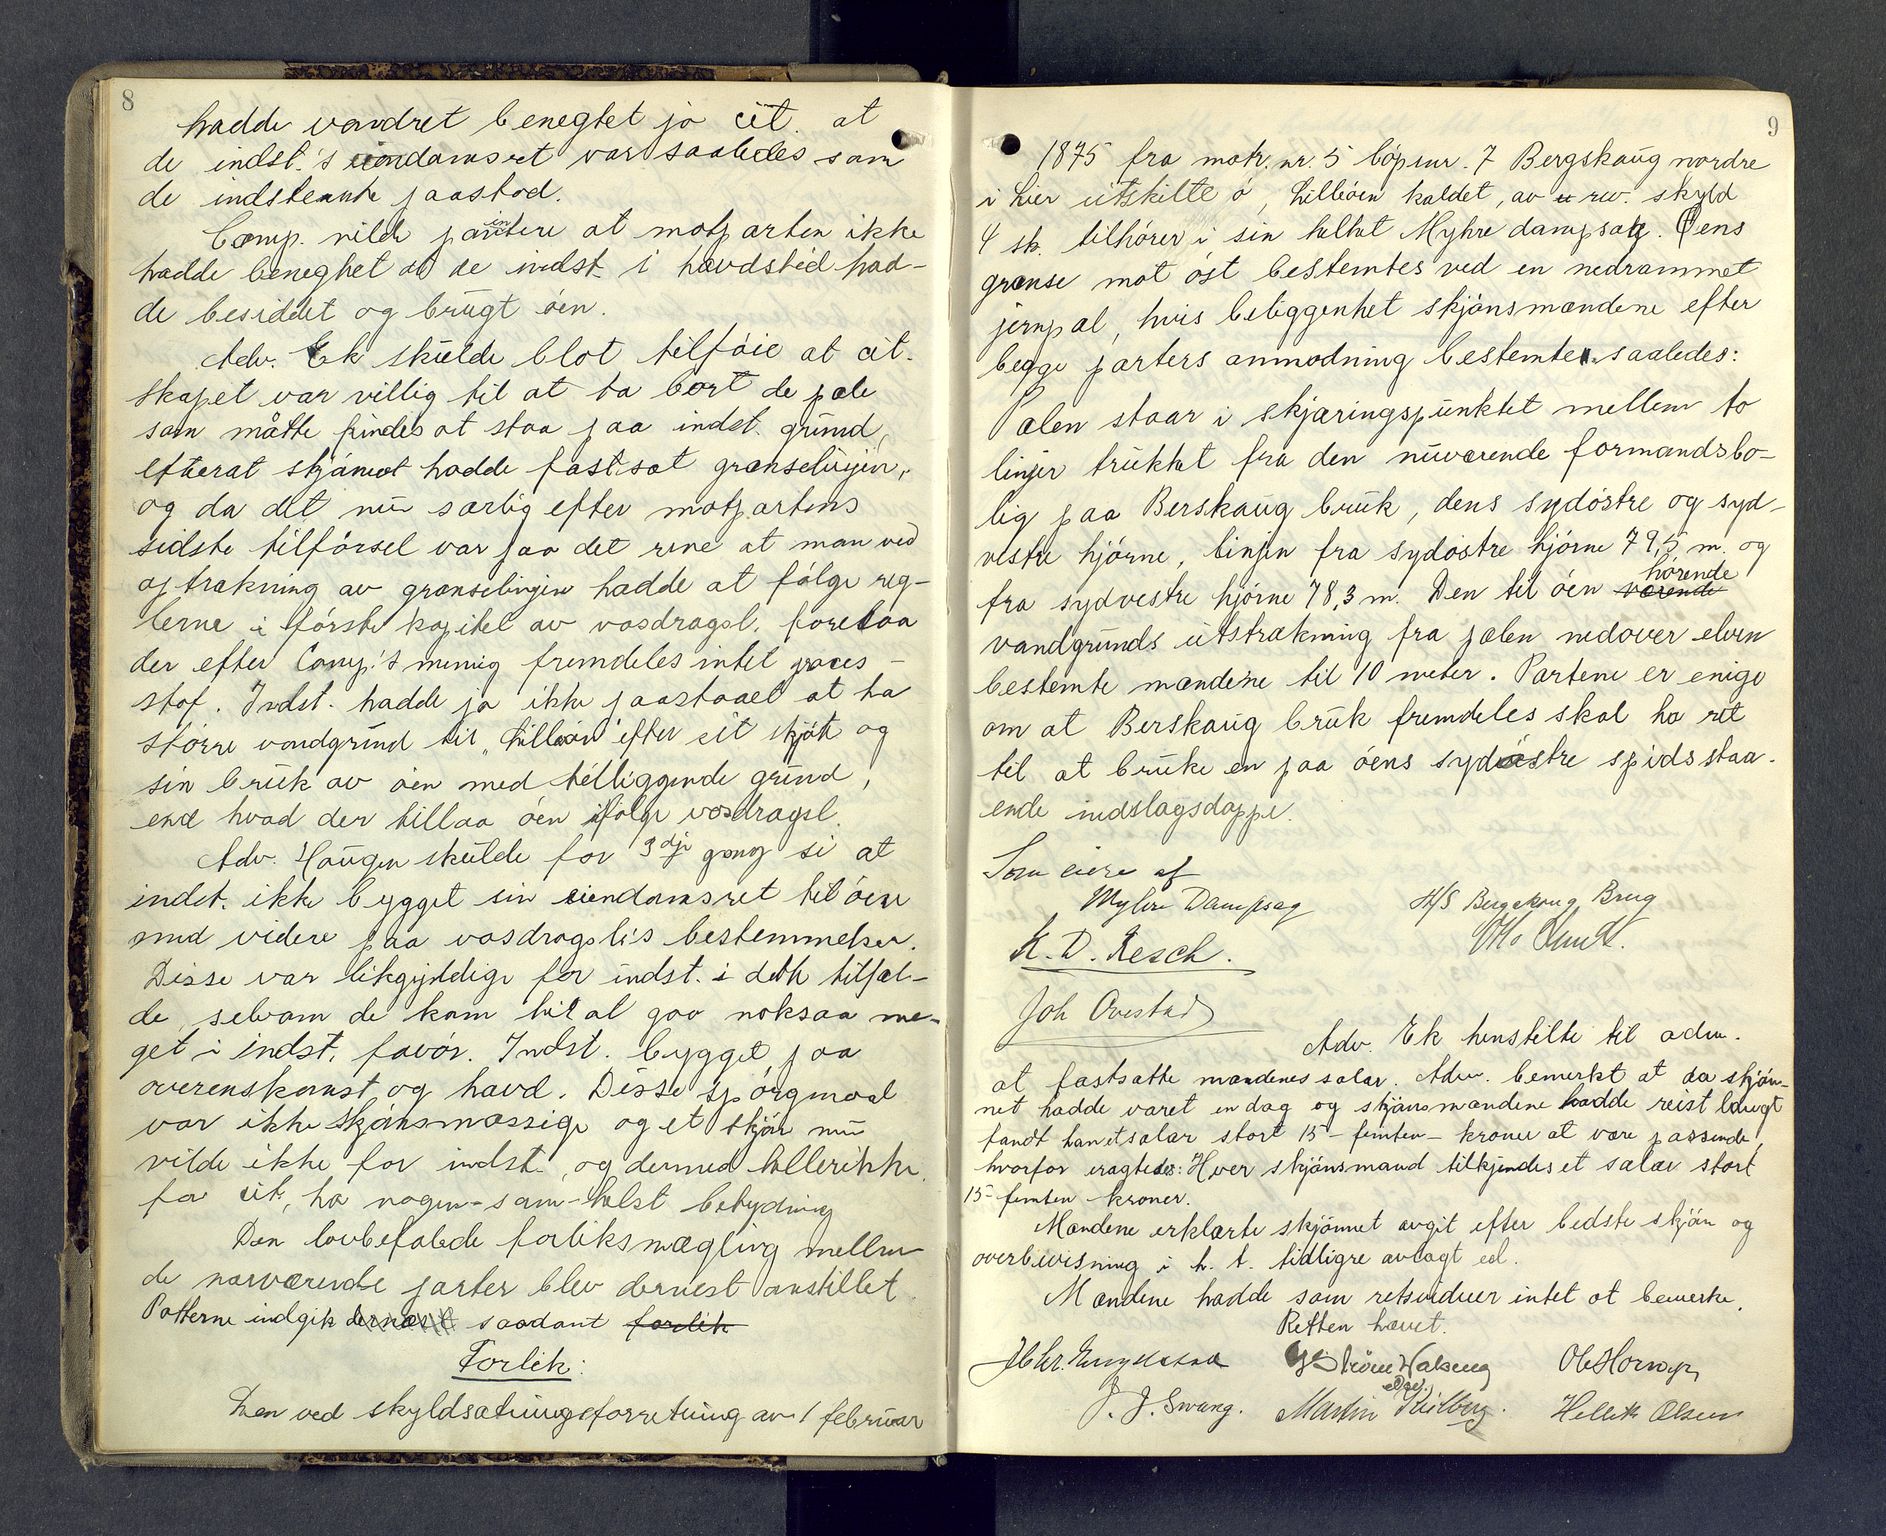 8
hadde vandret benegtet ja cit. at
de indst.'s eiendomsret var saaledes som
de indstevnte paastod.
Comp. vilde pointere at motparten ikke
hadde benegtet at de indst. i hævdstid had-
de besiddet og brugt øen.
Adv. Ek skulde blot tilføie at cit-
skapet var villig til at ta bort de pæle
som måtte findes at staa paa indst. grund,
efterat skjønnet hadde fastsat grænselinjen,
og da det nu særlig efter motpartens
sidste tilførsel var paa det rene at man ved
optrækning av grænselinjen hadde at følge reg-
lerne i første kapitel av vasdragsl. forelaa
der efter Comp.'s mening fremdeles intet proces-
stof. Indst. hadde jo ikke paastaaet at ha
større vandgrund til „Lilleøen" efter sit skjøte og
sin bruk av øen med tilliggende grund,
end hvad der tillaa øen ifølge vasdragsl.
Adv. Haugen skulde for 3dje gang si at
indst. ikke bygget sin eiendomsret til øen
med videre paa vasdragslis bestemmelser.
Disse var likegyldige for indst. i dette tilfæl-
de, selvom de kom til at gaa noksaa me-
get i indst. favør. Indst. bygget paa
overenskomst og hævd. Disse spørgmaal
var ikke skjønsmæssige og et skjøn nu
vilde ikke for indst. og dermed hellerikke
for cit. ha nogen-som-helst betydning
Den lovbefalede forliksmægling mellem
de nærværende parter blev dernest anstillet.
Parterne indgik dernæst saadant forlik
Forlik:
Den ved skyldsætningsforretning av 1 februar
9
1875 fra matr. nr. 5 løpenr. 7 Bergskaug nordre
i Lier utskilte ø, Lilleøen kaldet, av rev. skyld
4 sk. tilhører i sin helhet Myhre dampsag. Øens
grænse mot øst bestemtes ved en nedrammet
jernpæl, hvis beliggenhet skjønsmændene efter
begge parters anmodning bestemte saaledes:
Pælen staar i skjæringspunktet mellem to
linjer trukket fra den nuværende formandsbo-
lig paa Berskaug bruk, dens sydøstre og syd-
vestre hjørne, linjen fra sydøstre hjørne 79,5 m. og
fra sydvestre hjørne 78,3 m. Den til øen værende hørende
vandgrunds utstrækning fra pælen nedover elven
bestemte mændene til 10 meter. Partene er enige
om at Berskaug bruk fremdeles skal ha ret
til at bruke en paa øens sydøstre spids staa-
ende indslagsdoppe.
Som eiere af
Myhre Dampsag
H/S Bergskaug Brug
K. D. Resch.
Joh Ovestad
Adv. Ek henstilte til adm.
at fastsætte mændenes salær. Adm. bemerket at da skjøn-
net hadde varet en dag og skjønsmændene hadde reist langt
fandt han et salær stort 15 - femten - kroner at være passende,
hvorfor eragtedes: Hver skjønsmand tilkjendes et salær stort
15- femten kroner.
Mændene erklærte skjønnet avgit efter bedste skjøn og
overbevisning i h. t. tidligre avlagt ed.
Mændene hadde som retsvidner intet at bemerke.
Retten hævet.
J. J. Svang. Martin Kiilberg. Hellik Olsen